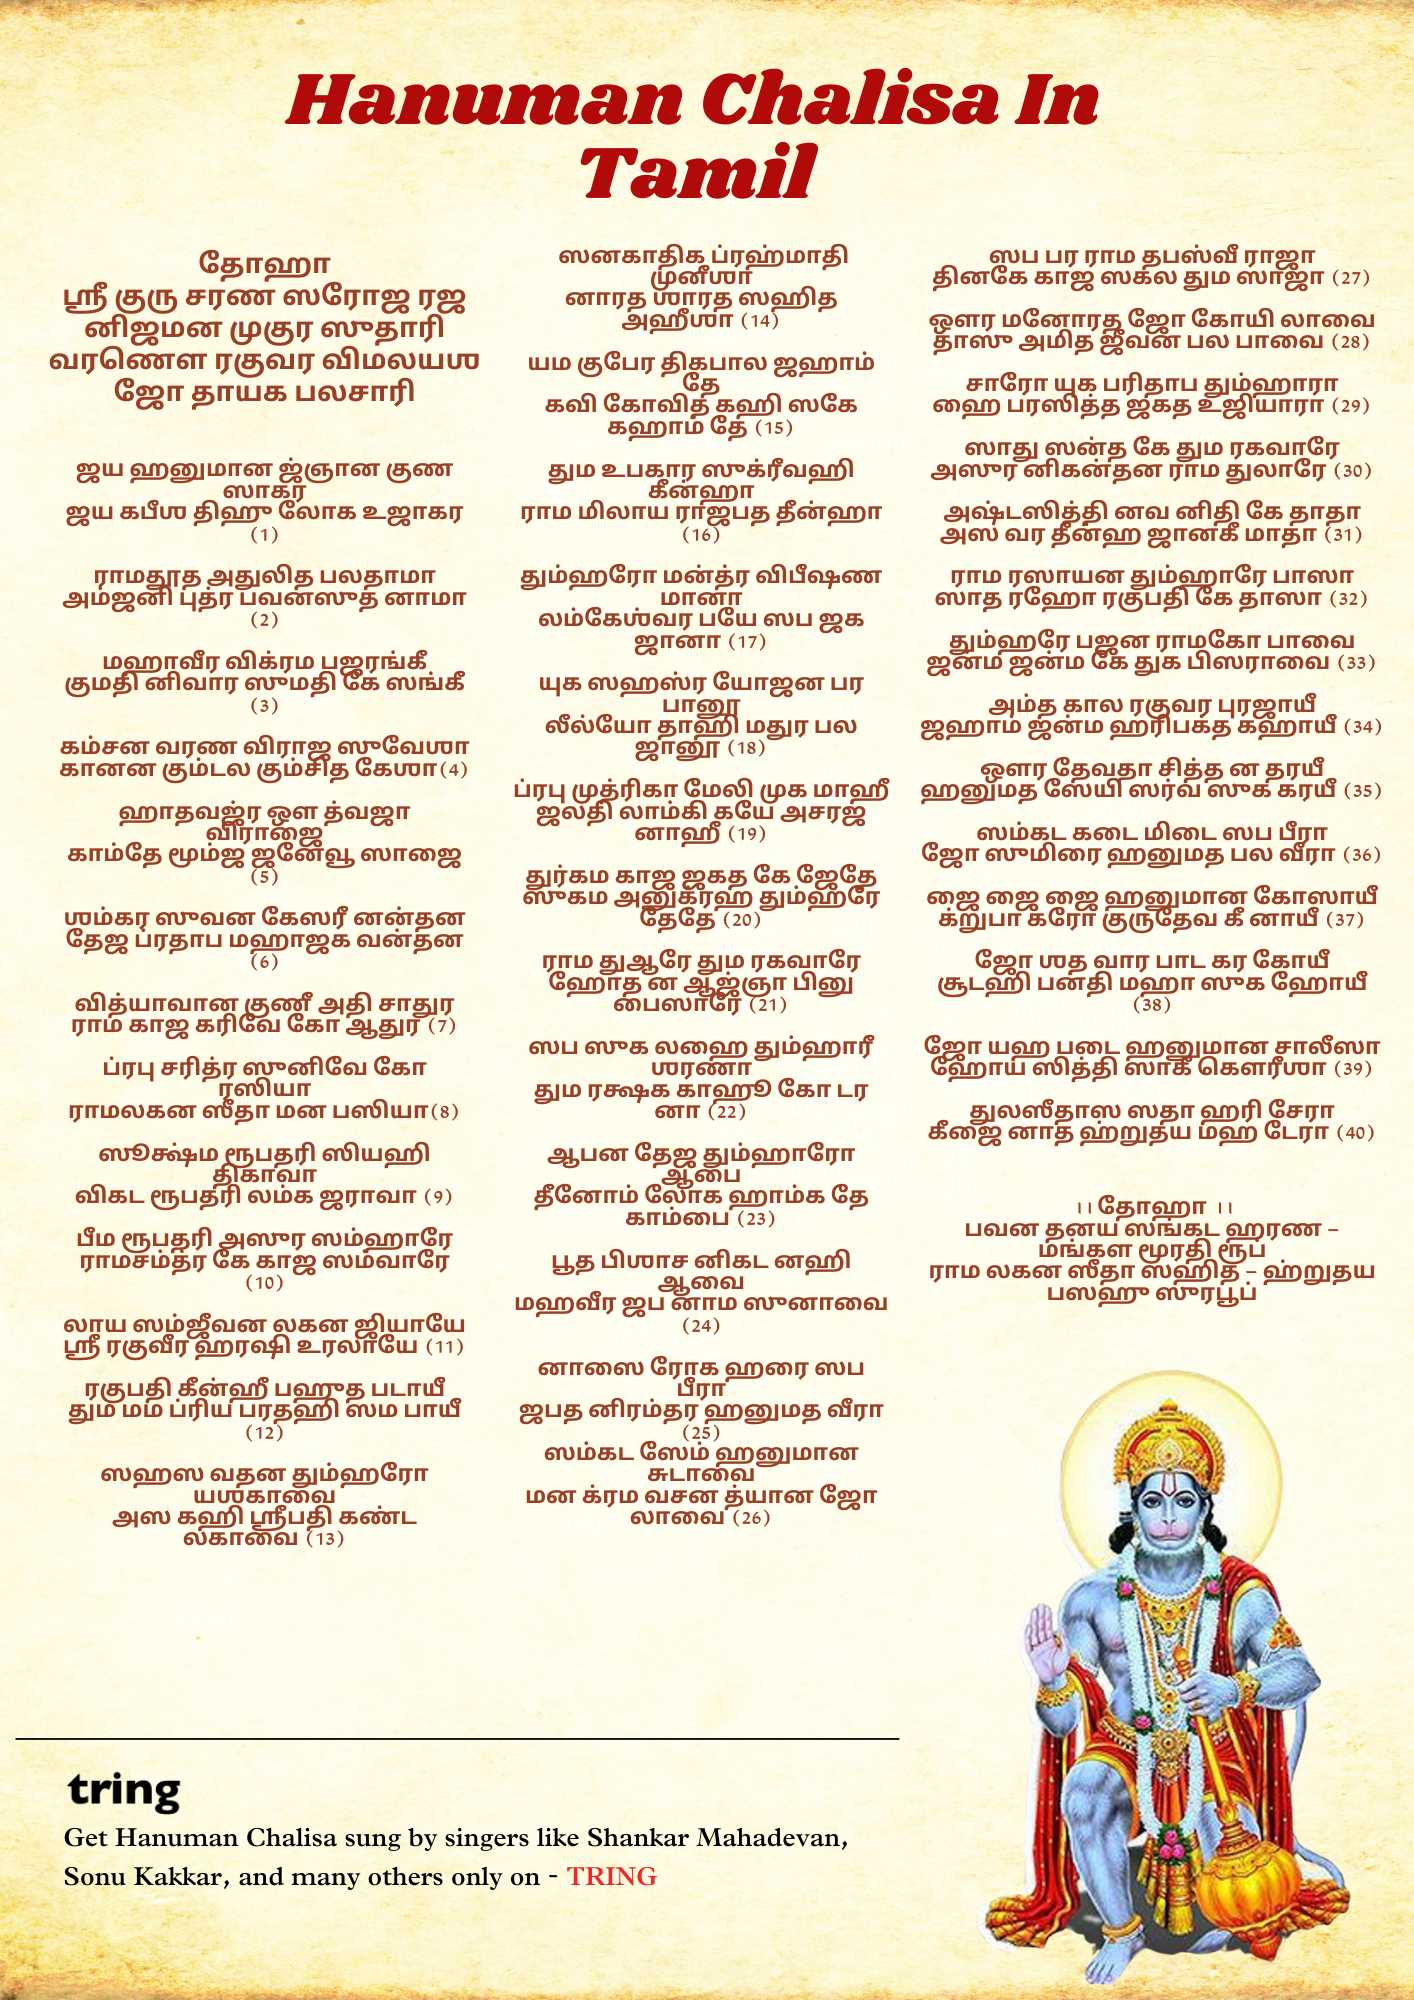 Hanuman Chalisa In
Tamil
தோஹா
ஸ்ரீ குரு சரண ஸரோஜ ரஜ
னிஜமன முகுர ஸுதாரி
வரணௌ ரகுவர விமலயஶ
ஜோ தாயக பலசாரி
ஜய ஹனுமான ஜ்ஞான குண
ஸாகர
ஜய கபீஶ திஹு லோக உஜாகர
(1)
ராமதூத அதுலித பலதாமா
அம்ஜனி புத்ர பவனஸுத னாமா
(2)
மஹாவீர விக்ரம பஜரங்கீ
குமதி னிவார ஸுமதி கே ஸங்கீ
(3)
கம்சன வரண விராஜ ஸுவேஶா
கானன கும்டல கும்சித கேஶா(4)
ஹாதவஜ்ர ஔ த்வஜா
விராஜை
காம்தே மூம்ஜ ஜனேவூ ஸாஜை
(5)
ஶம்கர ஸுவன கேஸரீ னன்தன
தேஜ ப்ரதாப மஹாஜக வன்தன
(6)
வித்யாவான குணீ அதி சாதுர
ராம காஜ கரிவே கோ ஆதுர (7)
ப்ரபு சரித்ர ஸுனிவே கோ
ரஸியா
ராமலகன ஸீதா மன பஸியா(8)
ஸூக்ஷ்ம ரூபதரி ஸியஹி
திகாவா
விகட ரூபதரி லம்க ஜராவா (9)
பீம ரூபதரி அஸுர ஸம்ஹாரே
ராமசம்த்ர கே காஜ ஸம்வாரே
(10)
லாய ஸம்ஜீவன லகன ஜியாயே
ஸ்ரீ ரகுவீர ஹரஷி உரலாயே (11)
ரகுபதி கீன்ஹீ பஹுத படாயீ
தும மம ப்ரிய பரதஹி ஸம பாயீ
(12)
ஸஹஸ வதன தும்ஹரோ
யஶகாவை
அஸ கஹி ஸ்ரீபதி கண்ட
லகாவை (13)
ஸனகாதிக ப்ரஹ்மாதி
முனீஶா
னாரத ஶாரத ஸஹித
அஹீஶா (14)
யம குபேர திகபால ஜஹாம்
தே
கவி கோவித கஹி ஸகே
கஹாம் தே (15)
தும உபகார ஸுக்ரீவஹி
கீன்ஹா
ராம மிலாய ராஜபத தீன்ஹா
(16)
தும்ஹரோ மன்த்ர விபீஷண
மானா
லம்கேஶ்வர பயே ஸப ஜக
ஜானா (17)
யுக ஸஹஸ்ர யோஜன பர
பானூ
லீல்யோ தாஹி மதுர பல
ஜானூ (18)
ப்ரபு முத்ரிகா மேலி முக மாஹீ
ஜலதி லாம்கி கயே அசரஜ
னாஹீ (19)
துர்கம காஜ ஜகத கே ஜேதே
ஸுகம அனுக்ரஹ தும்ஹரே
தேதே (20)
ராம துஆரே தும ரகவாரே
ஹோத ன ஆஜ்ஞா பினு
பைஸாரே (21)
ஸப ஸுக லஹை தும்ஹாரீ
ஶரணா
தும ரக்ஷக காஹூ கோ டர
னா (22)
ஆபன தேஜ தும்ஹாரோ
ஆபை
தீனோம் லோக ஹாம்க தே
காம்பை (23)
பூத பிஶாச னிகட னஹி
ஆவை
மஹவீர ஜப னாம ஸுனாவை
(24)
னாஸை ரோக ஹரை ஸப
பீரா
ஜபத னிரம்தர ஹனுமத வீரா
(25)
ஸம்கட ஸேம் ஹனுமான
சுடாவை
மன க்ரம வசன த்யான ஜோ
லாவை (26)
ஸப பர ராம தபஸ்வீ ராஜா
தினகே காஜ ஸகல தும ஸாஜா (27)
ஔர மனோரத ஜோ கோயி லாவை
தாஸு அமித ஜீவன பல பாவை (28)
சாரோ யுக பரிதாப தும்ஹாரா
ஹை பரஸித்த ஜகத உஜியாரா (29)
ஸாது ஸன்த கே தும ரகவாரே
அஸுர னிகன்தன ராம துலாரே (30)
அஷ்டஸித்தி னவ னிதி கே தாதா
அஸ வர தீன்ஹ ஜானகீ மாதா (31)
ராம ரஸாயன தும்ஹாரே பாஸா
ஸாத ரஹோ ரகுபதி கே தாஸா (32)
தும்ஹரே பஜன ராமகோ பாவை
ஜன்ம ஜன்ம கே துக பிஸராவை (33)
அம்த கால ரகுவர புரஜாயீ
ஜஹாம் ஜன்ம ஹரிபக்த கஹாயீ (34)
ஔர தேவதா சித்த ன தரயீ
ஹனுமத ஸேயி ஸர்வ ஸுக கரயீ (35)
ஸம்கட கடை மிடை ஸப பீரா
ஜோ ஸுமிரை ஹனுமத பல வீரா (36)
ஜை ஜை ஜை ஹனுமான கோஸாயீ
க்றுபா கரோ குருதேவ கீ னாயீ (37)
ஜோ ஶத வார பாட கர கோயீ
சூடஹி பன்தி மஹா ஸுக ஹோயீ
(38)
ஜோ யஹ படை ஹனுமான சாலீஸா
ஹோய ஸித்தி ஸாகீ கௌரீஶா (39)
துலஸீதாஸ ஸதா ஹரி சேரா
கீஜை னாத ஹ்றுதய மஹ டேரா (40)
।। தோஹா ।।
பவன தனய ஸங்கட ஹரண –
மங்கள மூரதி ரூப்
ராம லகன ஸீதா ஸஹித – ஹ்றுதய
பஸஹு ஸுரபூப்
tring
Get Hanuman Chalisa sung by singers like Shankar Mahadevan,
Sonu Kakkar, and many others only on - TRING